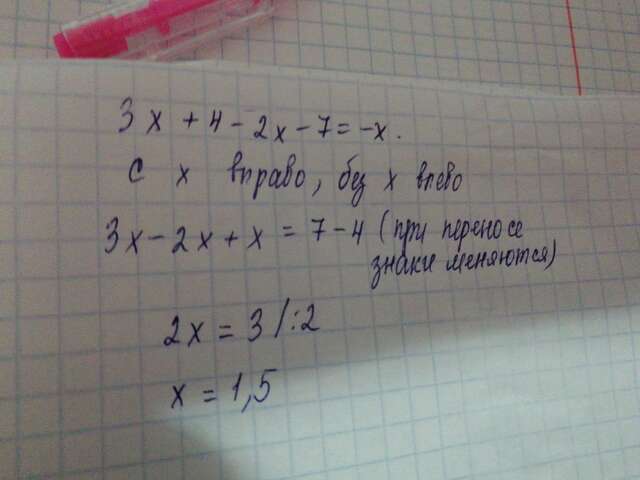 3x + 4 - 2x - 7 = -x.
с x вправо, без x влево
3x - 2x + x = 7 - 4 (при переносе
знаки меняются)
2x = 3 /:2
x = 1,5